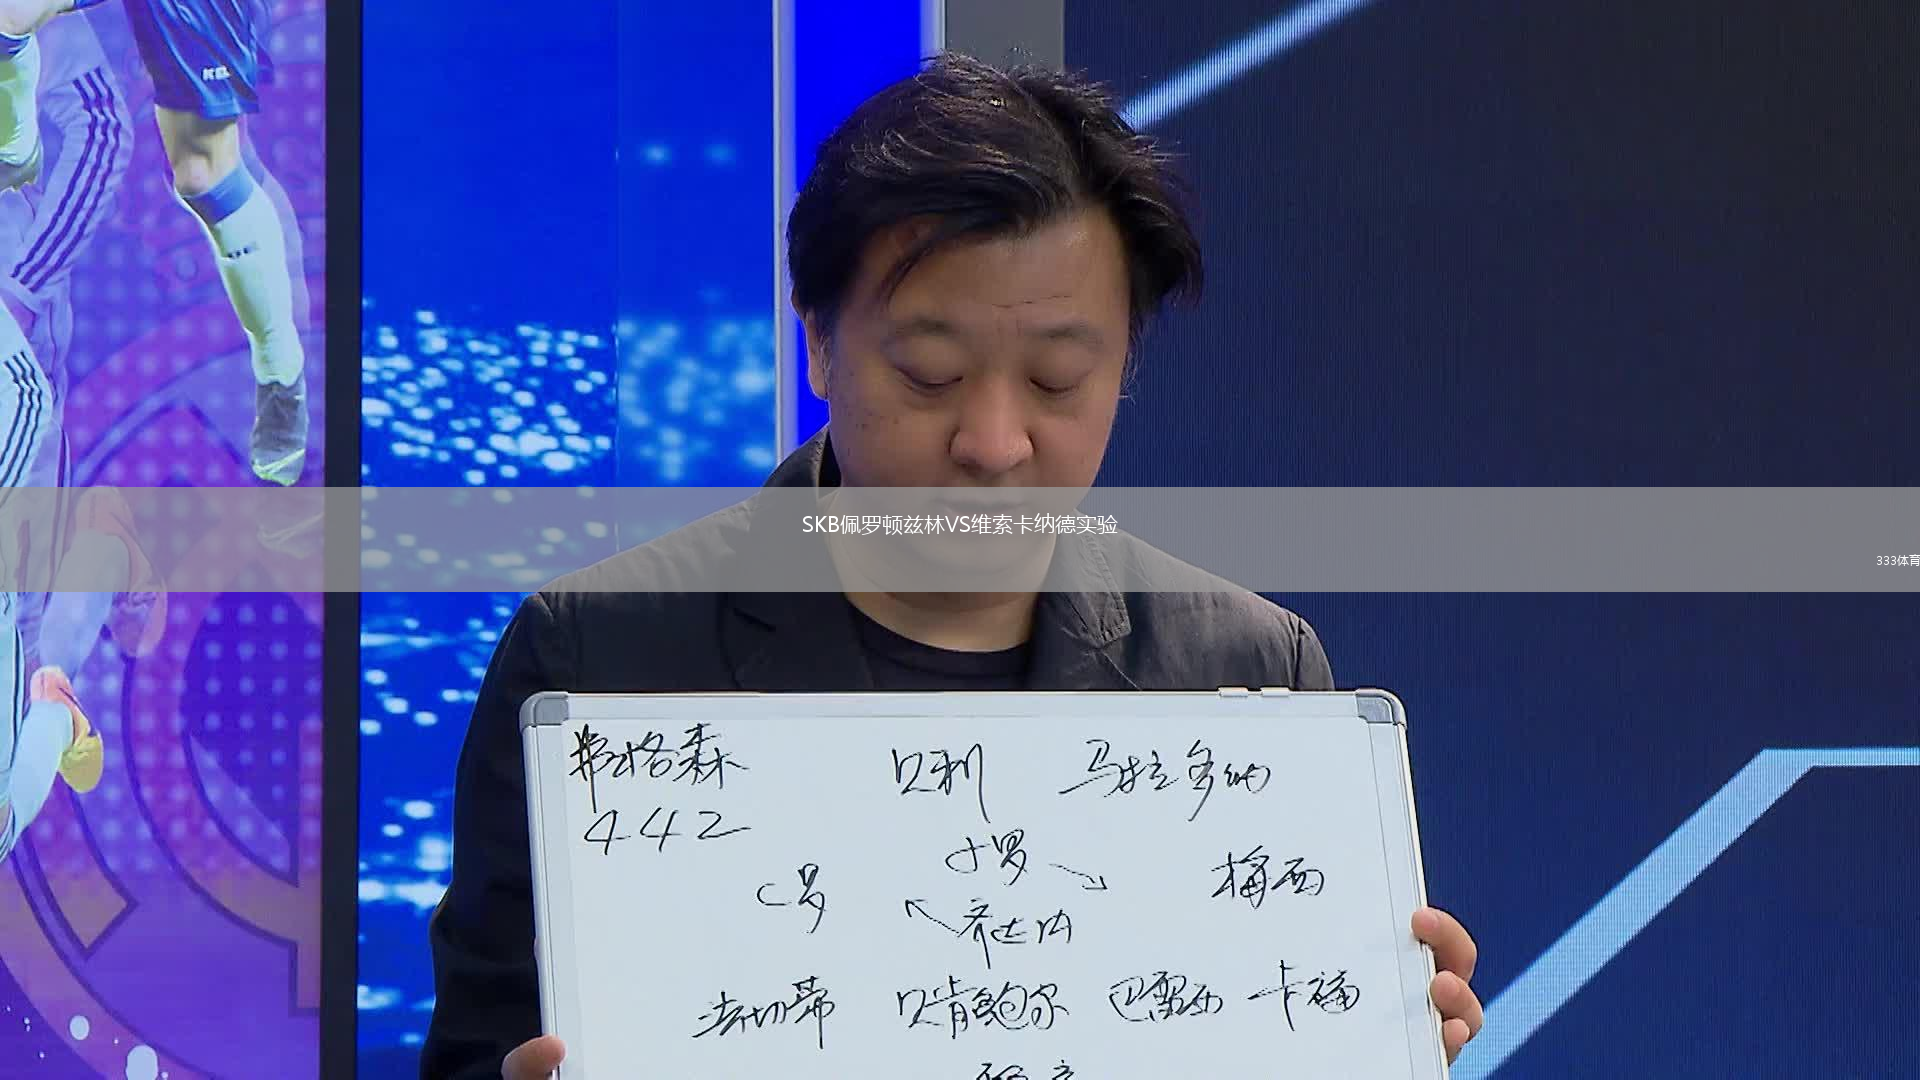 SKB佩罗顿兹林VS维索卡纳德实验
333体育
弗格森 贝利 马拉多纳
442
小罗
C罗 梅西
齐达内
法切蒂 贝肯鲍尔 巴雷西 卡福